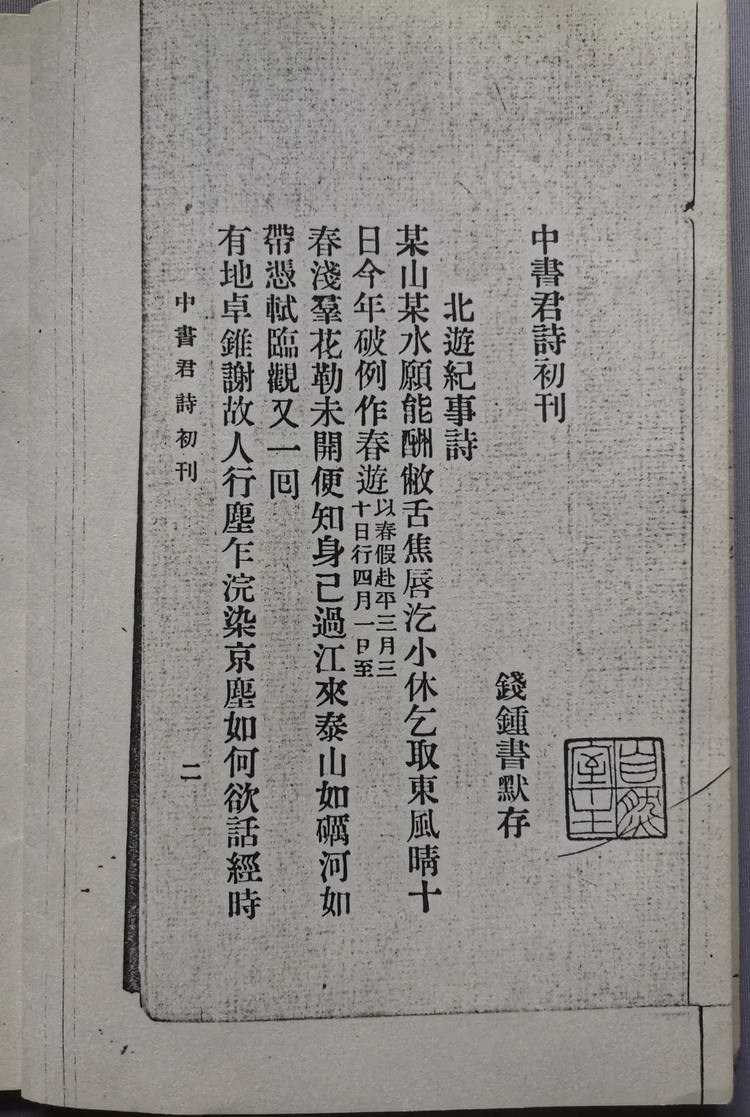 中書君詩初刊
錢鍾書默存
北遊紀事詩
某山某水願能酬敝舌焦唇汔小休乞取東風晴十
日今年破例作春遊以春假赴平三月三
十日行四月一日至
春淺羣花勒未開便知身已過江來泰山如礪河如
帶憑軾臨觀又一回
有地卓錐謝故人行塵乍浣染京塵如何欲話經時
中書君詩初刊
二